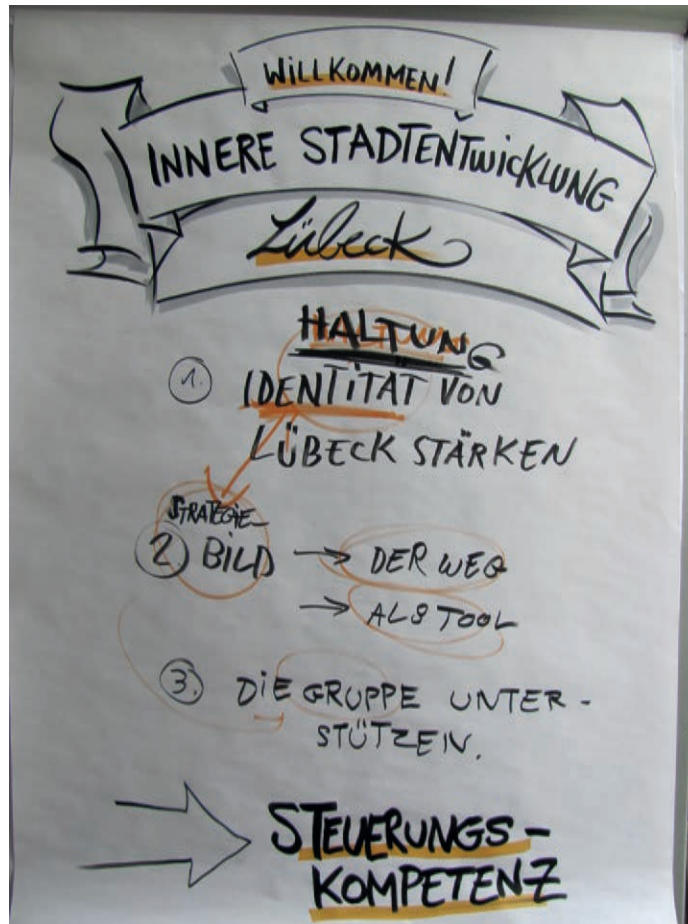 WILLKOMMEN!
INNERE STADTENTWICKLUNG
Lübeck
HALTUNG
1. IDENTITÄT VON
LÜBECK STÄRKEN
STRATEGIE-
2) BILD → DER WEG
→ ALS TOOL
3. DIE GRUPPE UNTER-
STÜTZEN.
STEUERUNGS-
KOMPETENZ